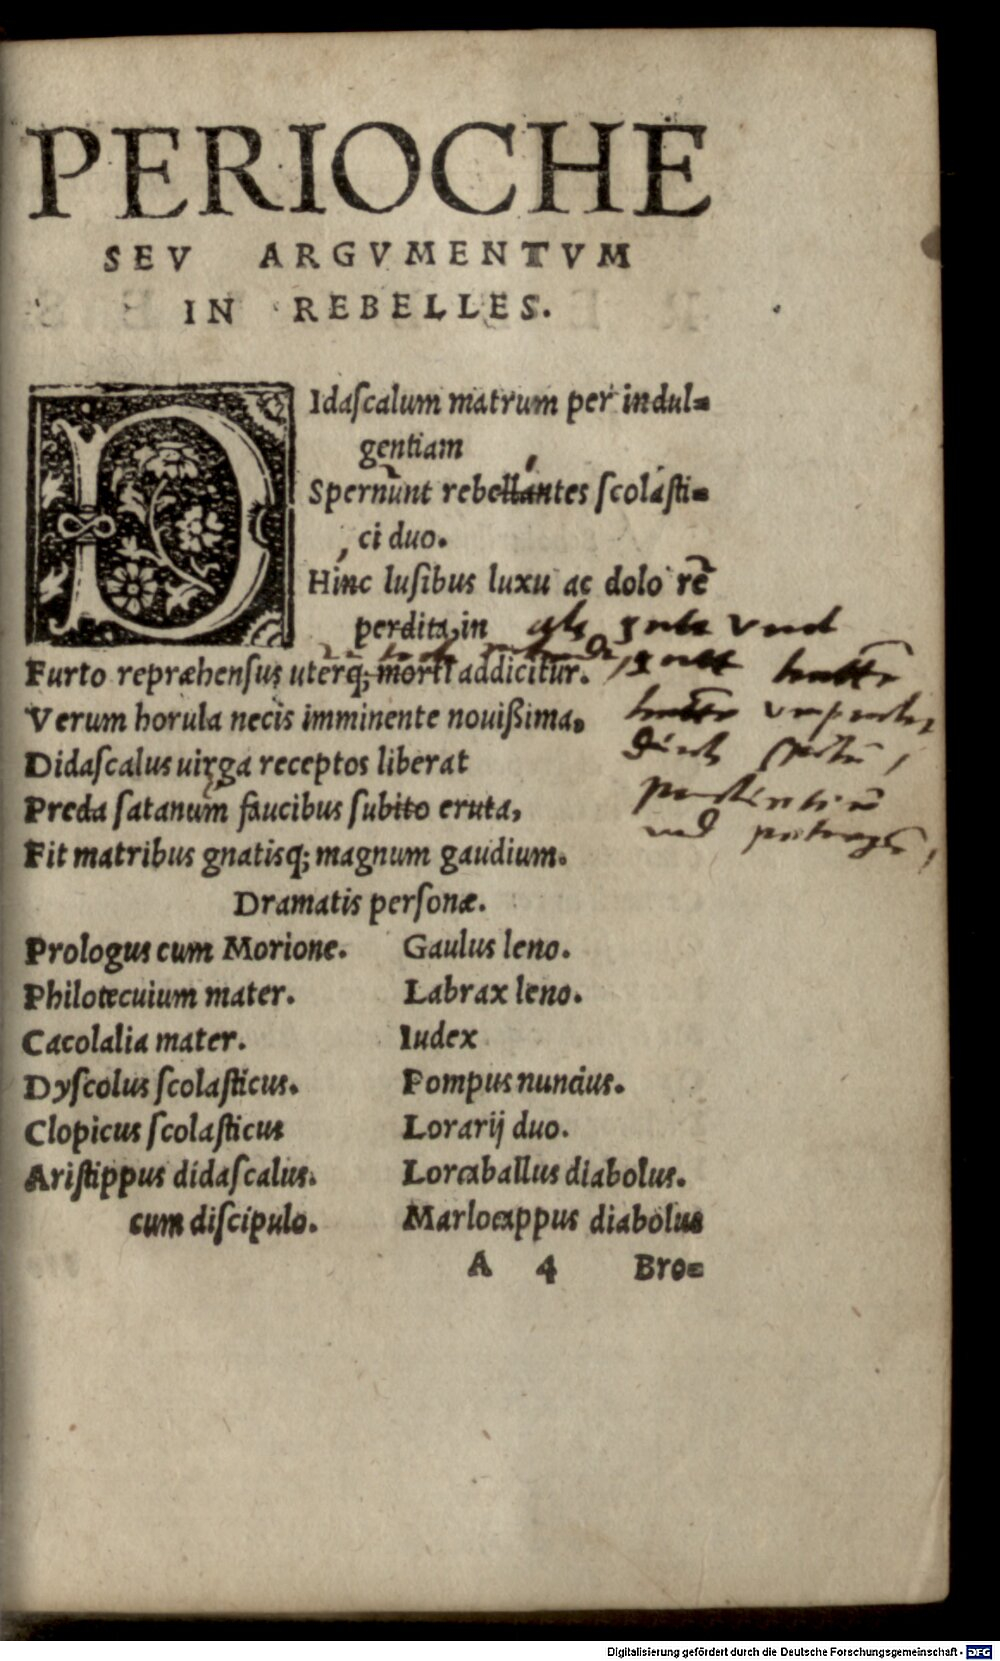 PERIOCHE
SEV ARGVMENTVM
IN REBELLES.
DIdaſcalum matrum per indul⸗
gentiam
Spernunt rebellantes ſcolaſti⸗
ci duo.
Hinc luſibus luxu ac dolo rē
perdita, in
als gute Vnd
Furto repræhenſus uterq; morti addicitur.
Verum horula necis imminente nouißima,
Didaſcalus uirga receptos liberat
durch
Preda ſatanum faucibus ſubito eruta,
vnd
Fit matribus gnatisq; magnum gaudium.
Dramatis perſonæ.
Prologus cum Morione.
Philotecuium mater.
Cacolalia mater.
Dyſcolus ſcolaſticus.
Clopicus ſcolaſticus
Ariſtippus didaſcalus.
cum diſcipulo.
Gaulus leno.
Labrax leno.
Iudex
Pompus nuncius.
Lorarij duo.
Lorcaballus diabolus.
Marlocappus diabolus
A 4 Bro⸗
Digitalisierung gefördert durch die Deutsche Forschungsgemeinschaft - DFG